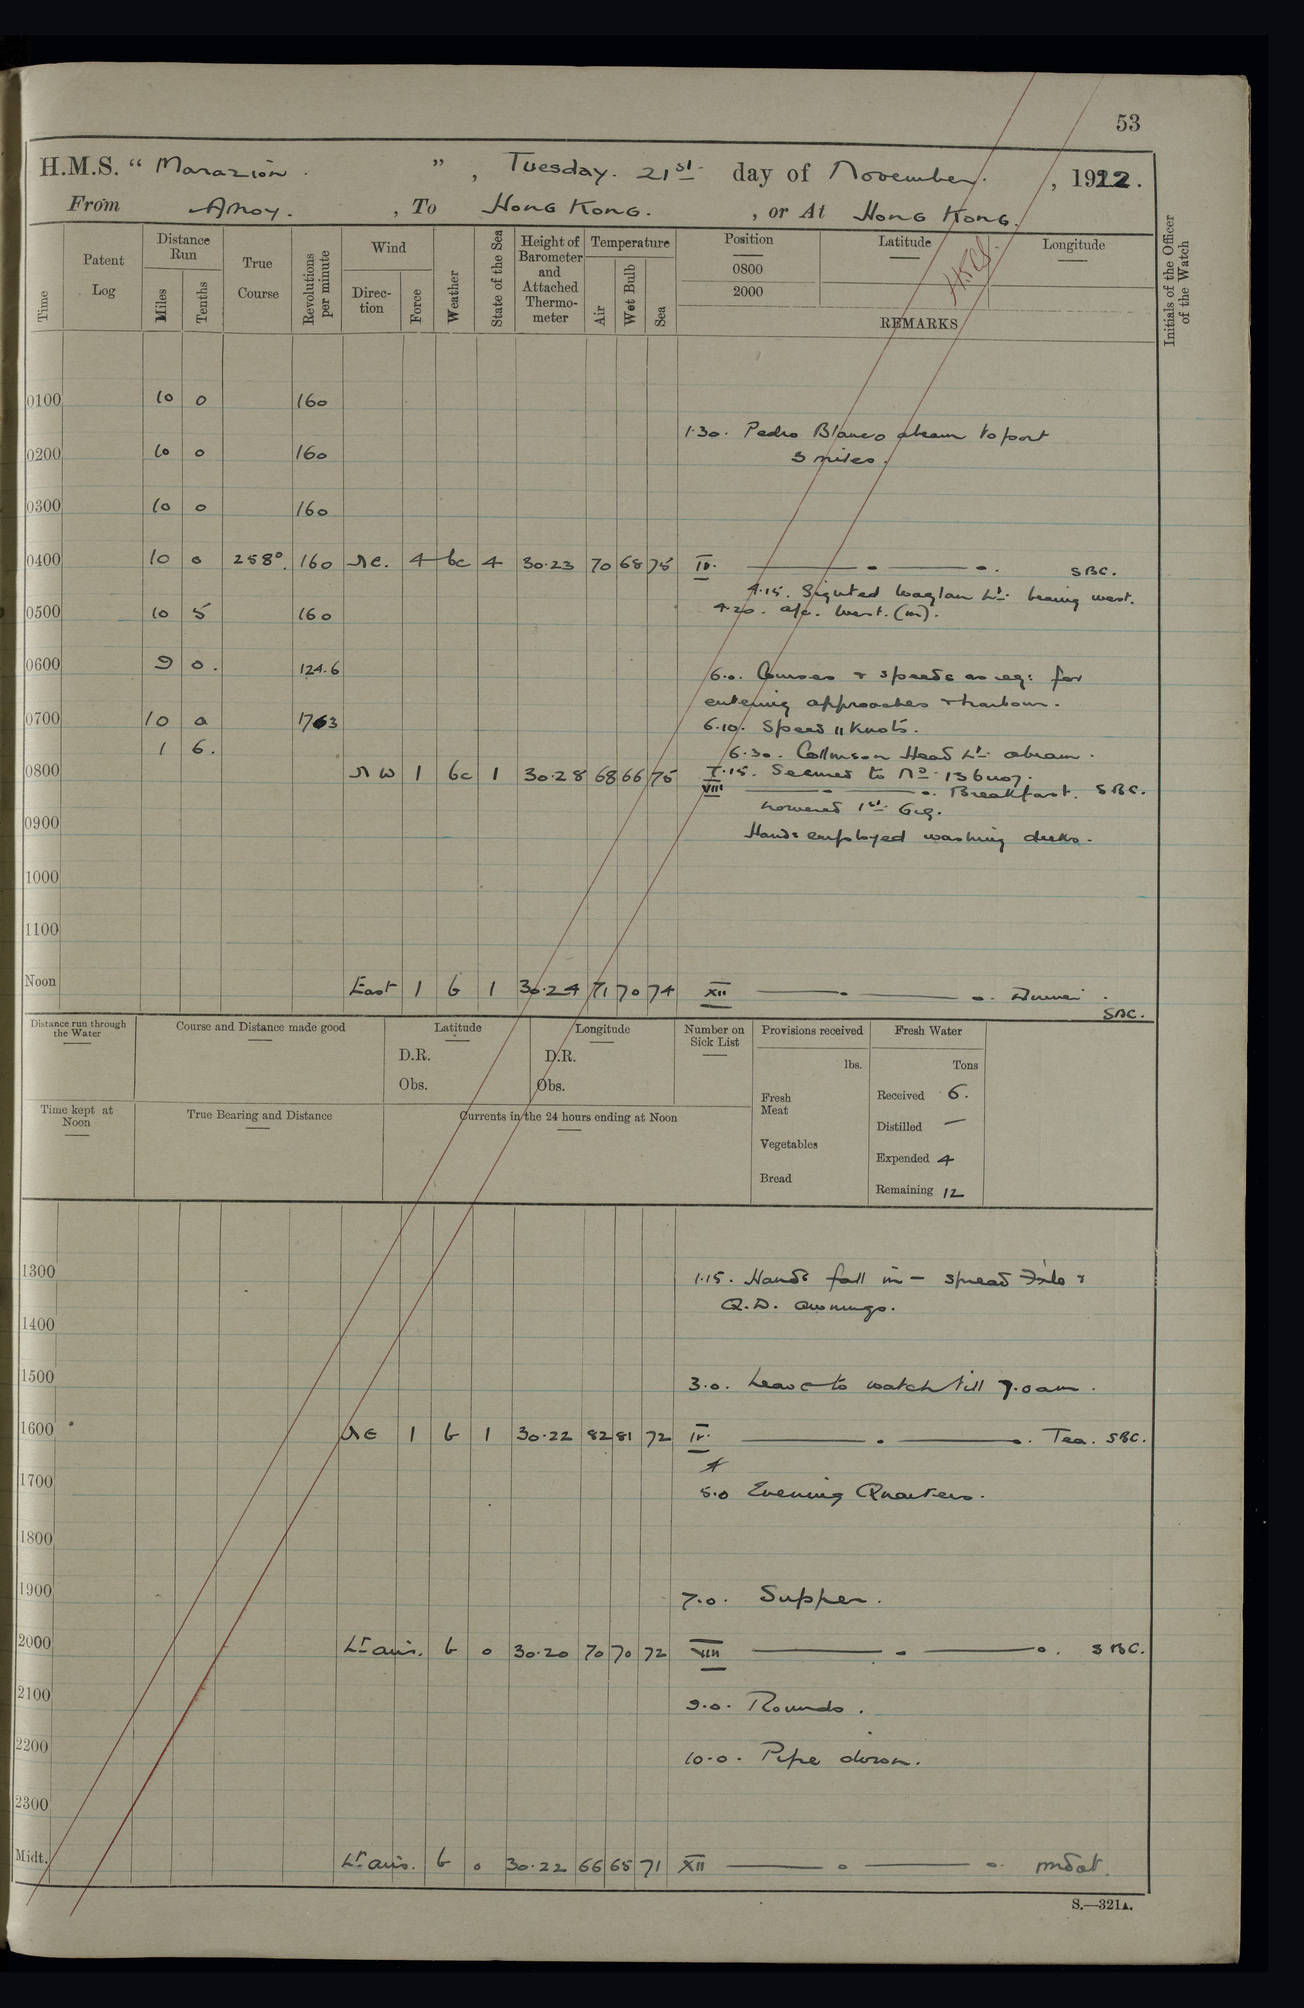 53
H.M.S. “ Marazion . ” , Tuesday. 21st. day of November. , 1922.
From Amoy. , To Hong Kong. , or At Hong Kong.
Time
Patent Log
Distance Run
Miles
Tenths
True Course
Revolutions per minute
Wind
Direc- tion
Force
Weather
State of the Sea
Height of Barometer and Attached Thermo- meter
Temperature
Air
Wet Bulb
Sea
Position
0800
2000
Latitude
Longitude
REMARKS
Initials of the Officer of the Watch
0100 10 0 160
1.30. Pedro Blanco abeam to port
3 miles.
0200 10 0 160
0300 10 0 160
0400 10 0 258°. 160 NE. 4 bc 4 30.23 70 68 75 IV. SBC.
4.15. Sighted Waglan Lt. bearing west.
4.20. a/c. West. (m).
0500 10 5 160
0600 9 0. 124.6
6.0. Courses & speeds as req: for
entering approaches & harbour.
0700 10 0 1763
6.10. Speed 11 Knots.
1 6.
6.30. Collinson Head Lt. abeam.
7.15. Secured to No. 13 buoy.
0800 NW 1 bc 1 30.28 68 66 75 VIII Breakfast. SBC.
Lowered 1st. Gig.
0900
Hands employed washing decks.
1000
1100
Noon East 1 b 1 30.24 71 70 74 XII Dinner.
SBC.
Distance run through the Water
Course and Distance made good
Latitude
D.R.
Obs.
Longitude
D.R.
Obs.
Number on Sick List
Provisions received
lbs.
Fresh Meat
Vegetables
Bread
Fresh Water
Tons
Received 6.
Distilled —
Expended 4
Remaining 12
Time kept at Noon
True Bearing and Distance
Currents in the 24 hours ending at Noon
1300
1.15. Hands fall in – spread &
Q.D. awnings.
1400
1500
3.0. Leave to watch till 7.0 am.
1600 NE 1 b 1 30.22 82 81 72 IV. Tea. SBC.
1700
5.0 Evening Quarters.
1800
1900
7.0. Supper.
2000 Lt airs. b 0 30.20 70 70 72 VIII SBC.
2100
9.0. Rounds.
2200
10.0. Pipe down.
2300
Midt. Lt airs. b 0 30.22 66 65 71 XII
S.—321A.